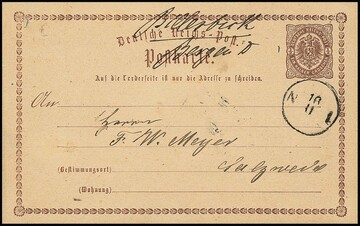 Deutsche Reichs-Post.
Postkarte.
Auf die Vorderseite ist nur die Adresse zu schreiben.
An
Herrn
F. W. Meyer
(Bestimmungsort)
Salzwedel
(Wohnung)
N 10 1
11